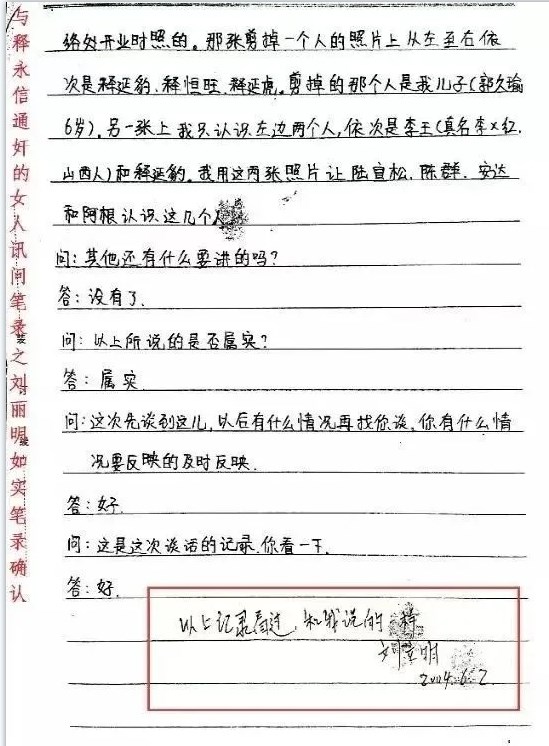 与释永信通奸的女人讯问笔录之刘丽明如实笔录确认
络处开业时照的。那张剪掉一个人的照片上从左至右依
次是释延豹、释恒旺、释延虎。剪掉的那个人是我儿子(郭久瑜
6岁)。另一张上我只认识左边两个人,依次是李王(真名李×红,
山西人)和释延豹。我用这两张照片让陆宜松、陈群、安达
和阿根认识这几个人
问:其他还有什么要讲的吗?
答:没有了.
问:以上所说的是否属实?
答:属实
问:这次先谈到这儿,以后有什么情况再找你谈,你有什么情
况要反映的及时反映.
答:好.
问:这是这次谈话的记录.你看一下.
答:好.
以上记录看过,和我说的一样
刘立明
2004.6.2